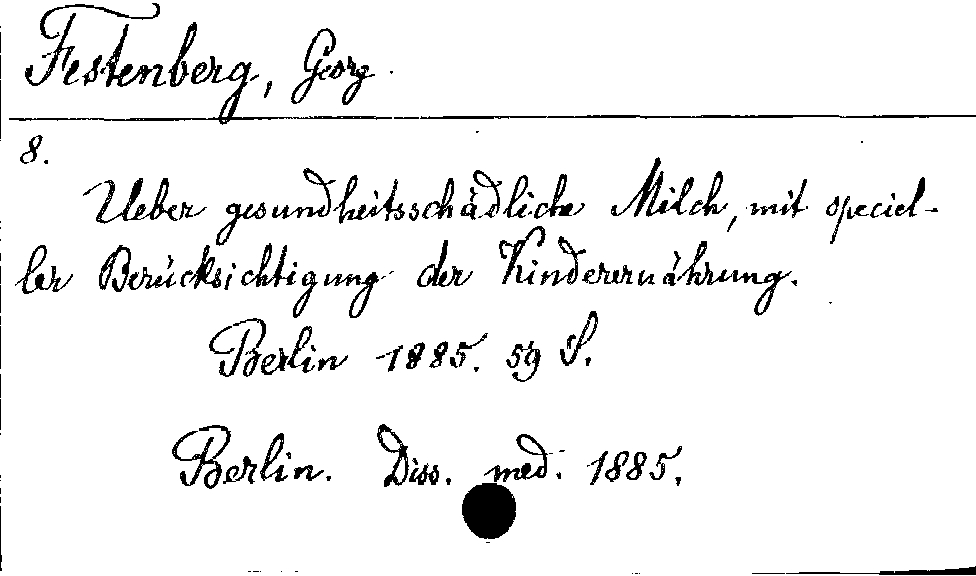 Festenberg, Georg
8.
Ueber gesundheitsschädliche Milch, mit speciel-
ler Berücksichtigung der Kinderernährung.
Berlin 1885. 59 S.
Berlin. Diss. med. 1885.